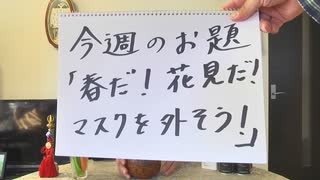 今週のお題
「春だ！花見だ！
マスクを外そう！」